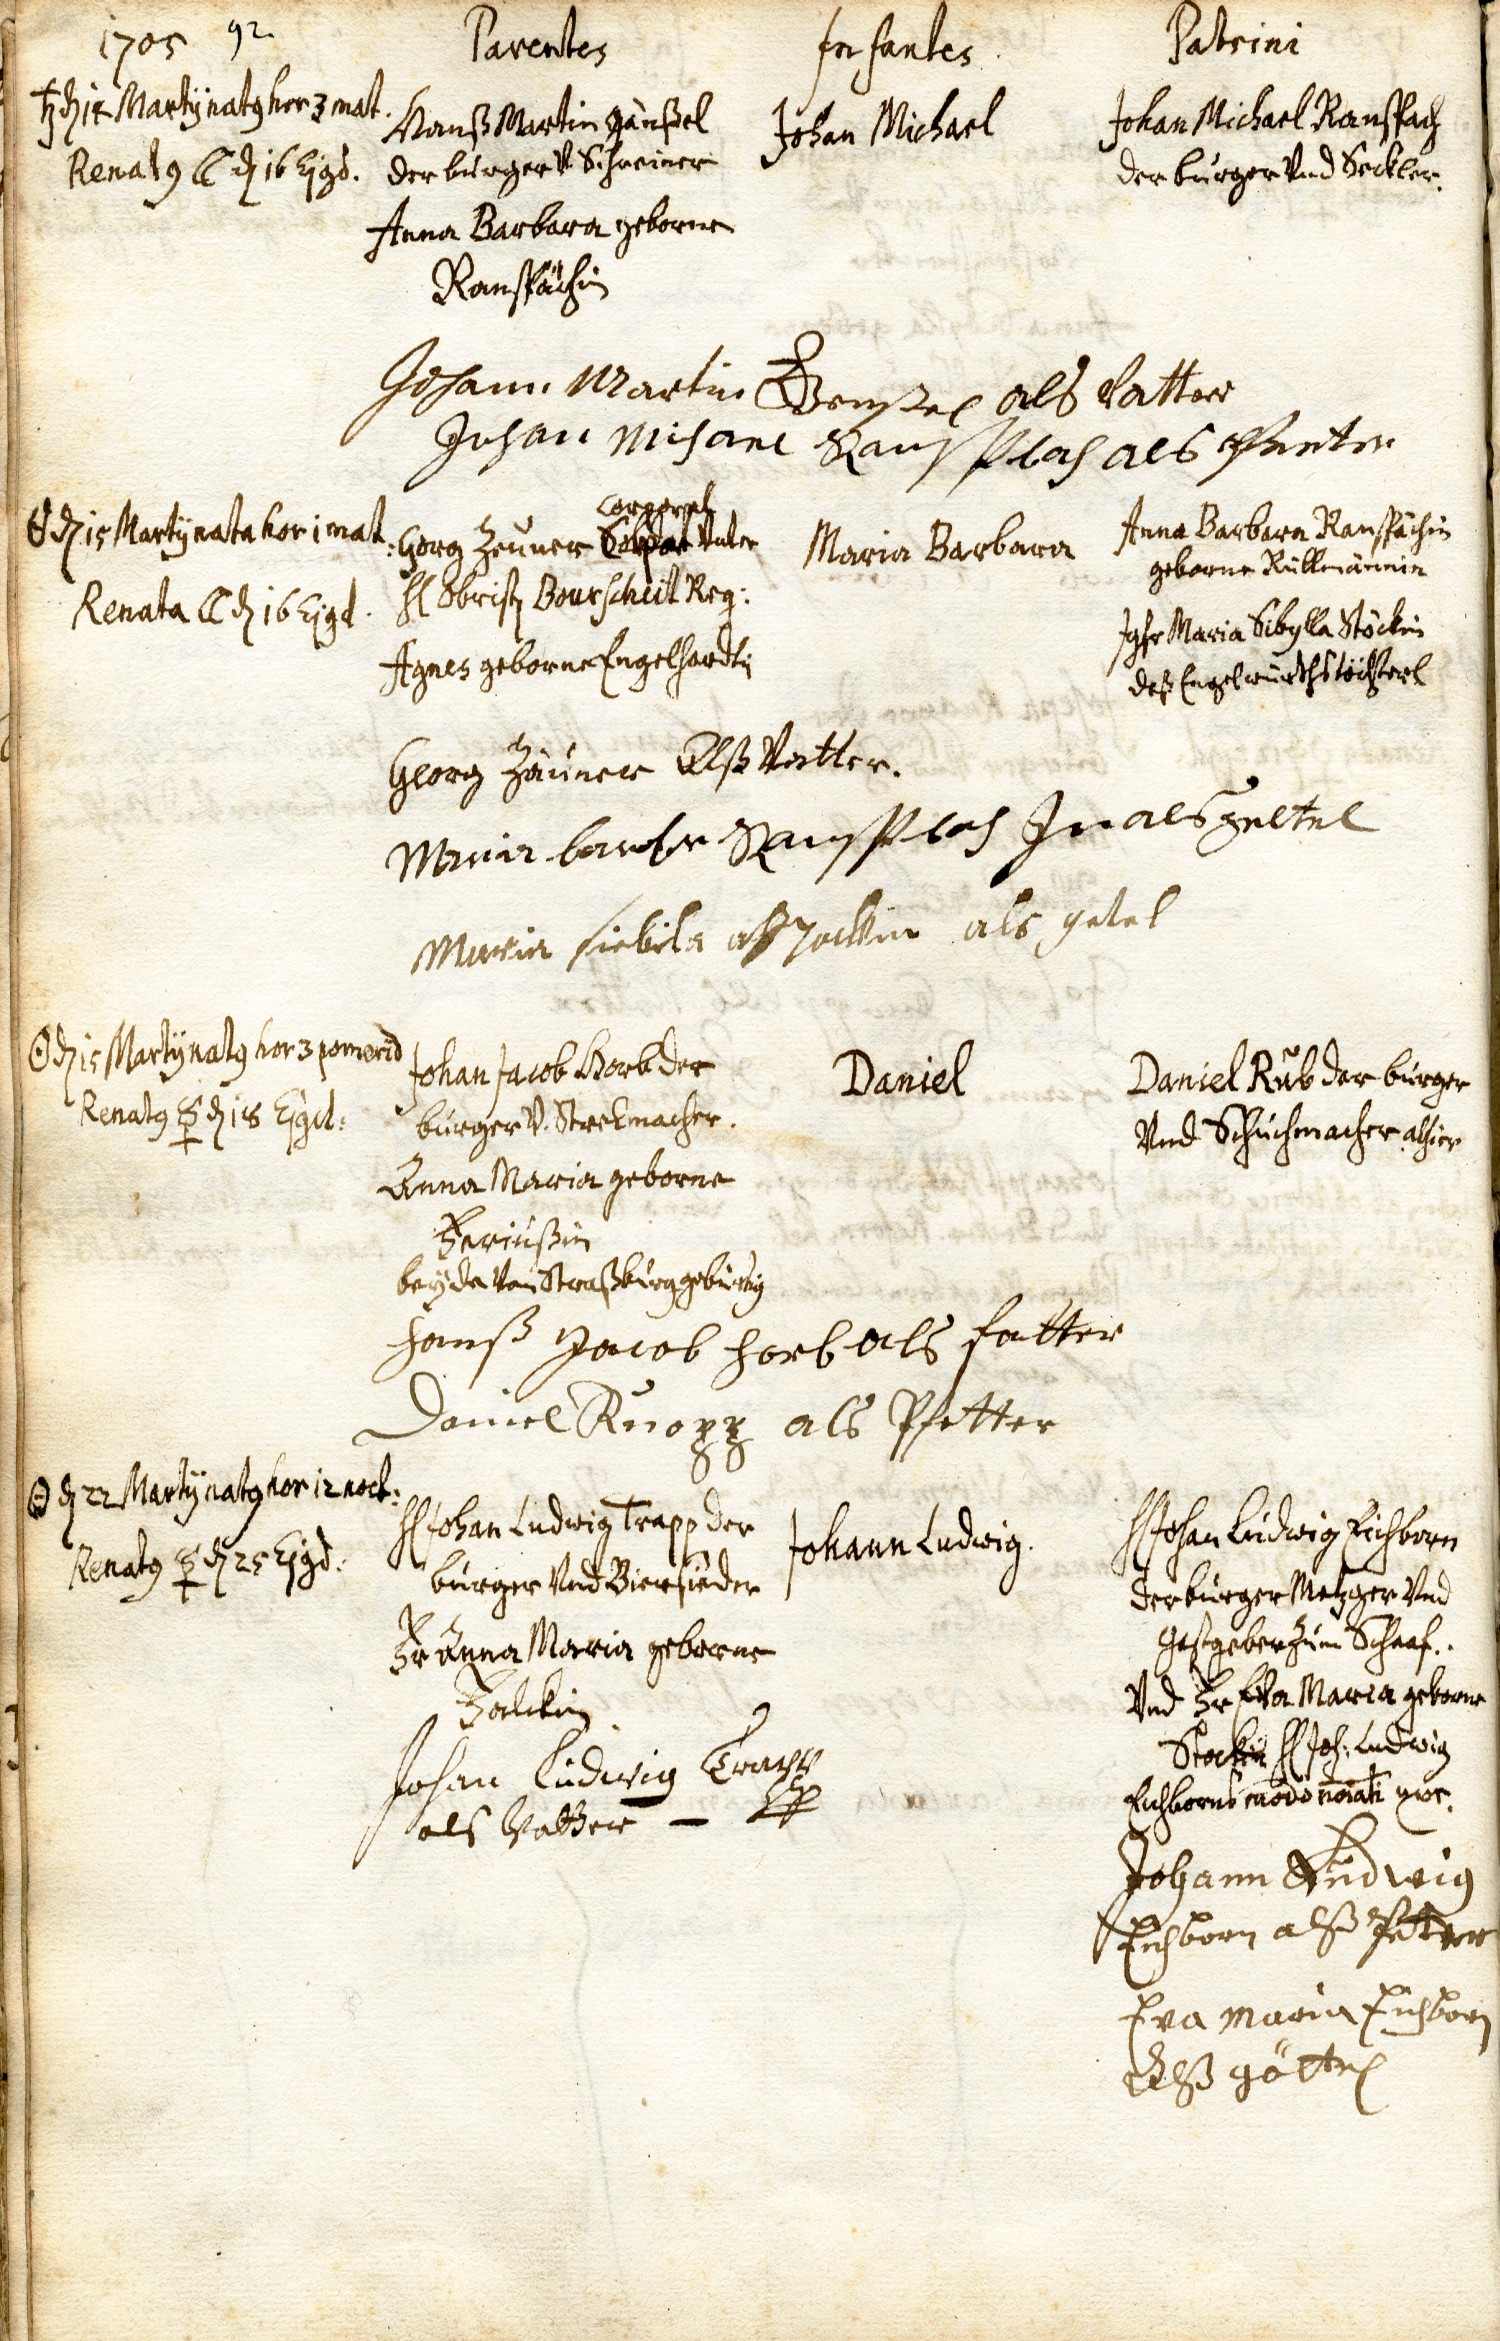 1705 92 Parentes Infantes. Patrini
♄ d 14 Martÿ natq hor 3 mat.
Renatq ☾ d 16 Ejqd.
Hanß Martin Gänßel
der burger V. Schreiner
Anna Barbara geborne
Ranspächin
Johan Michael
Johan Michael Ranspach
der burger Vnd Seckler.
Johann Martin Genßel als Vatter
Johan Michael Ranspach als Pfetter
☉ d 15 Martÿ nata hor 1 mat.
Renata ☾ d 16 Ejqd.
Corporal
Georg Zeuner Vnter
H Obrist Bourscheit Reg:
Agnes geborne Engelhardti
Maria Barbara
Anna Barbara Ranspächin
geborne Rüllmännin
Jgfr Maria Sibylla Stöckin
deß Engelwürths töchterl
Georg Zäuner Alß Vatter.
Maria barbr Ranspach In als geltel
Maria siebila als getel
☉ d 15 Martÿ natq hor 3 pomerid
Renatq ☿ d 18 Ejqd:
Johan Jacob Horb der
burger V. Strekmacher.
Anna Maria geborne
beÿde Von Straßburg gebürtig
Daniel
Daniel Rüb der burger
Vnd Schuchmacher alhier
Hanß Jacob Horb als fatter
Daniel Ruopp als Pfetter
☉ d 22 Martÿ natq hor 12 noct:
Renatq ☿ d 25 Ejqd:
H Johan Ludwig Trapp der
burger Vnd Biersieder
Fr Anna Maria geborne
Falckin
Johann Ludwig.
H Johan Ludwig Eichborn
der burger Metzger Vnd
Gastgeber Zum Schaaf.
Vnd Fr Eva Maria geborne
Stockin H Joh: Ludwig
Eichborns modo noïati uxor.
Johan Ludwig Trapp
als Vatter
Johann Ludwig
Eichborn alß Petter
Eva Maria Eichborn
Alß göttel